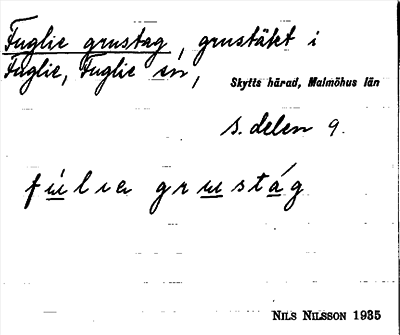 Fuglie grustag, grustäkt i
Fuglie, Fuglie sn,
Skytts härad, Malmöhus län
s. delen 9.
fúlıa grustág
NILS NILSSON 1935